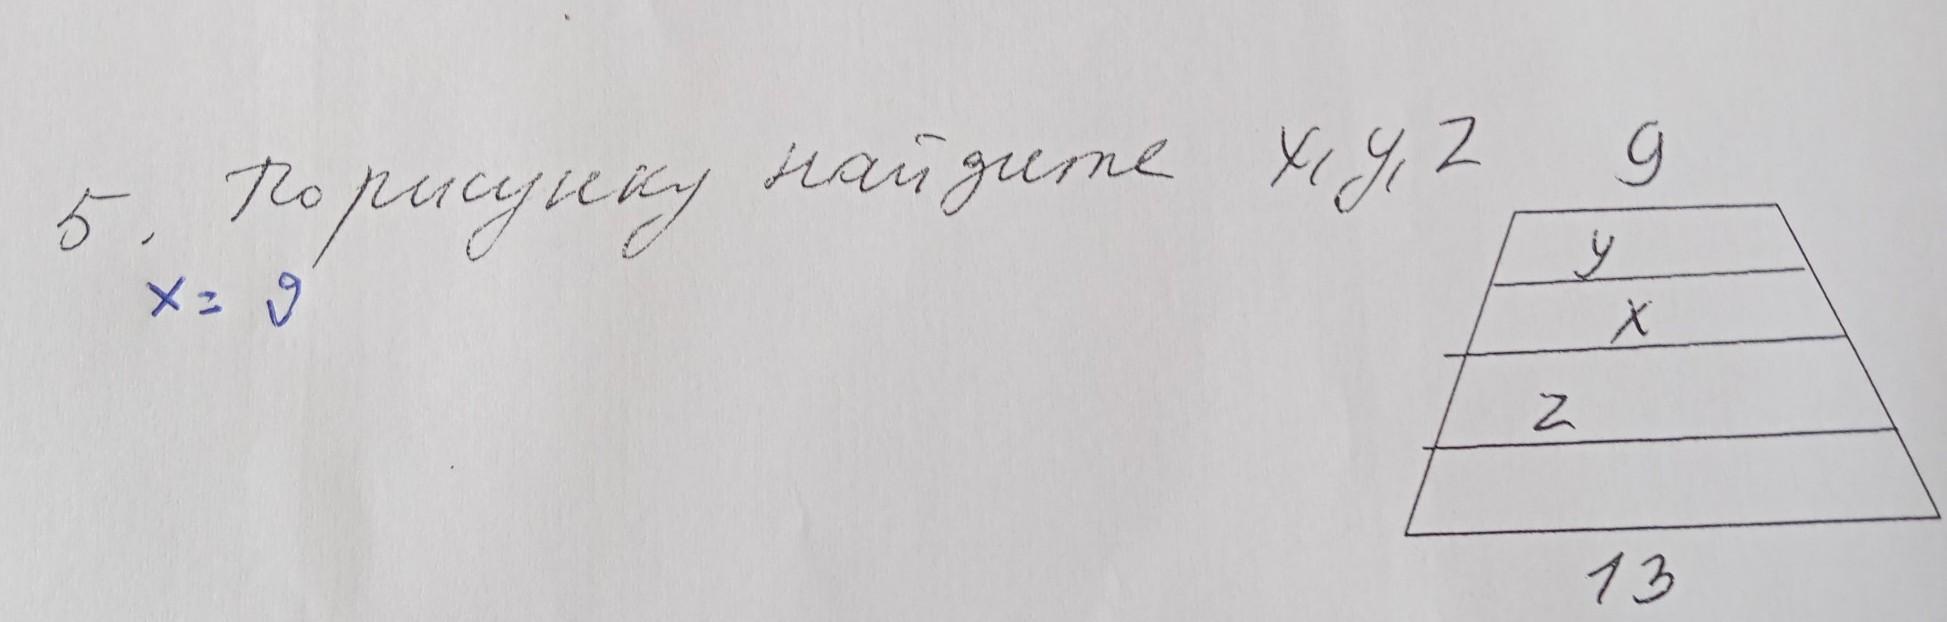 5. По рисунку найдите x, y, z
x = 9
9
y
x
z
13